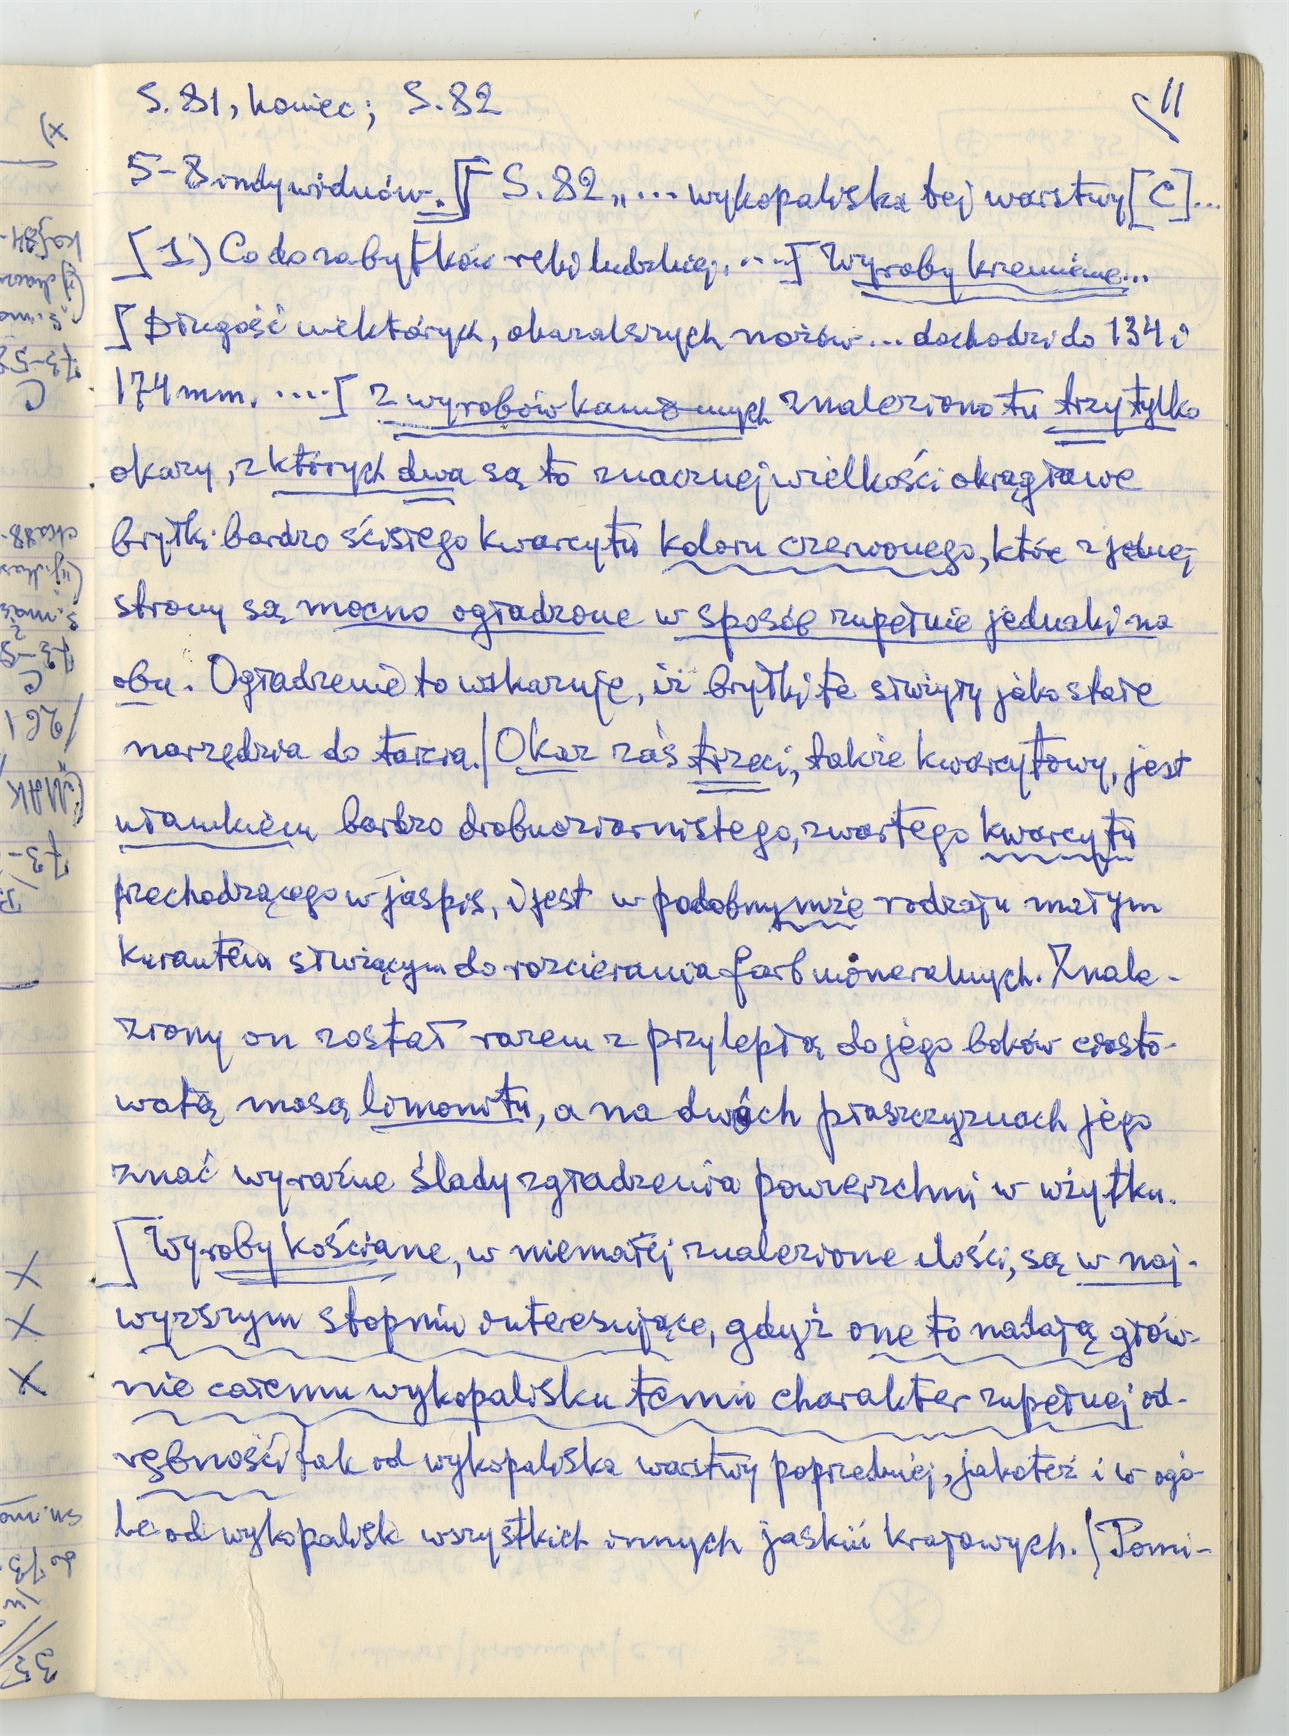 11
S. 81, koniec; S. 82
5-8 indywiduów.]] S. 82 „... wykopaliska tej warstwy [C]...
[1) Co do zabytków ręki ludzkiej. ....] Wyroby krzemienne...
[Długość niektórych, okazalszych nożów... dochodzi do 134 i
174 mm. ....] z wyrobów kamiennych znaleziono tu trzy tylko
okazy, z których dwa są to znacznej wielkości okrągławe
bryłki bardzo ścisłego kwarcytu koloru czerwonego, które z jednej
strony są mocno ogładzone w sposób zupełnie jednaki na
obu. Ogładzenie to wskazuje, iż bryłki te służyły jako stałe
narzędzia do tarcia. / Okaz zaś trzeci, także kwarcytowy, jest
ułamkiem bardzo drobnoziarnistego, zwartego kwarcytu
przechodzącego w jaspis, i jest w podobnymże rodzaju małym
kurantem służącym do rozcierania farb mineralnych. Znale-
ziony on został razem z przylepłą do jego boków ciasto-
watą masą limonitu, a na dwóch płaszczyznach jego
znać wyraźne ślady zgładzenia powierzchni w użytku.
[Wyroby kościane, w niemałej znalezione ilości, są w naj-
wyższym stopniu interesujące, gdyż one to nadają głów-
nie całemu wykopalisku temu charakter zupełnej od-
rębności tak od wykopaliska warstwy poprzedniej, jakoteż i w ogó-
le od wykopalisk wszystkich innych jaskiń krajowych. / Pomi-